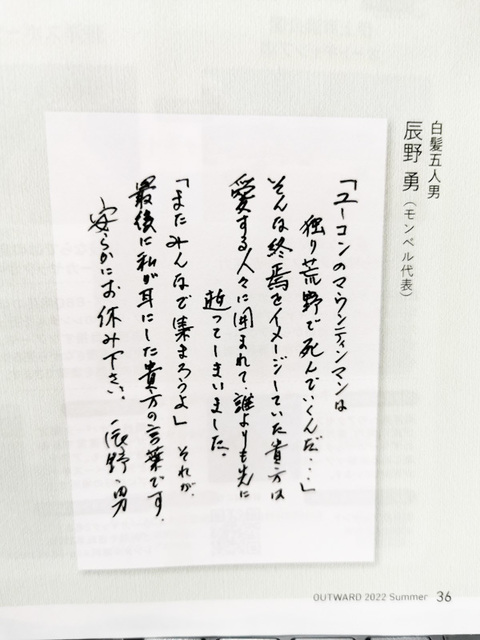 白髪五人男
辰野 勇（モンベル代表）
「ユーコンのマウンテンマンは
独り荒野で死んでいくんだ・・・」
そんな終焉をイメージしていた貴方は
愛する人々に囲まれて、誰よりも先に
逝ってしまいました。
「またみんなで集まろうよ」それが、
最後に私が耳にした貴方の言葉です。
安らかにお休み下さい。辰野 勇
OUTWARD 2022 Summer 36